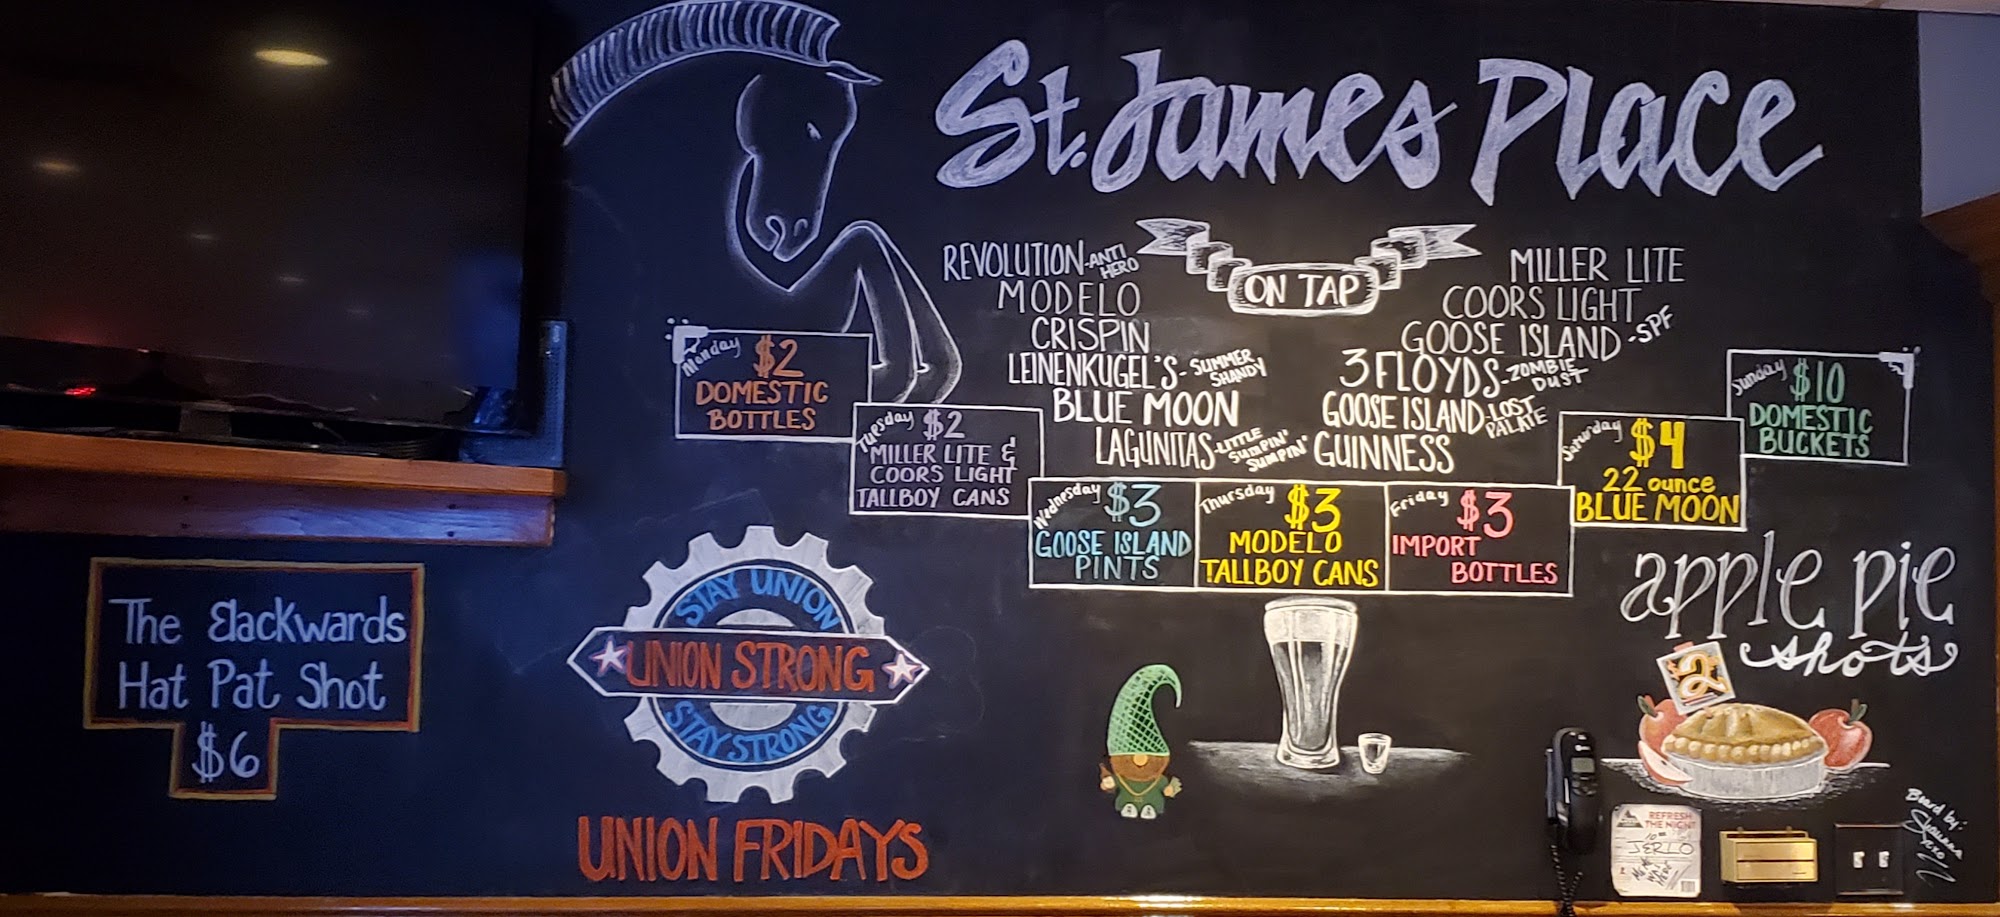 St. James Place
ON TAP
REVOLUTION-ANTI HERO
MODELO
CRISPIN
LEINENKUGEL'S-SUMMER SHANDY
BLUE MOON
LAGUNITAS-LITTLE SUMPIN' SUMPIN'
MILLER LITE
COORS LIGHT
GOOSE ISLAND-SPF
3 FLOYDS-ZOMBIE DUST
GOOSE ISLAND-LOST PALATE
GUINNESS
Monday $2
DOMESTIC
BOTTLES
Tuesday $2
MILLER LITE &
COORS LIGHT
TALLBOY CANS
Wednesday $3
GOOSE ISLAND
PINTS
Thursday $3
MODELO
TALLBOY CANS
Friday $3
IMPORT
BOTTLES
Saturday $4
22 ounce
BLUE MOON
Sunday $10
DOMESTIC
BUCKETS
The Backwards
Hat Pat Shot
$6
STAY UNION
UNION STRONG
STAY STRONG
UNION FRIDAYS
apple pie
shots
$2
REFRESH
THE NIGHT
JERLO
Board by:
Shawna